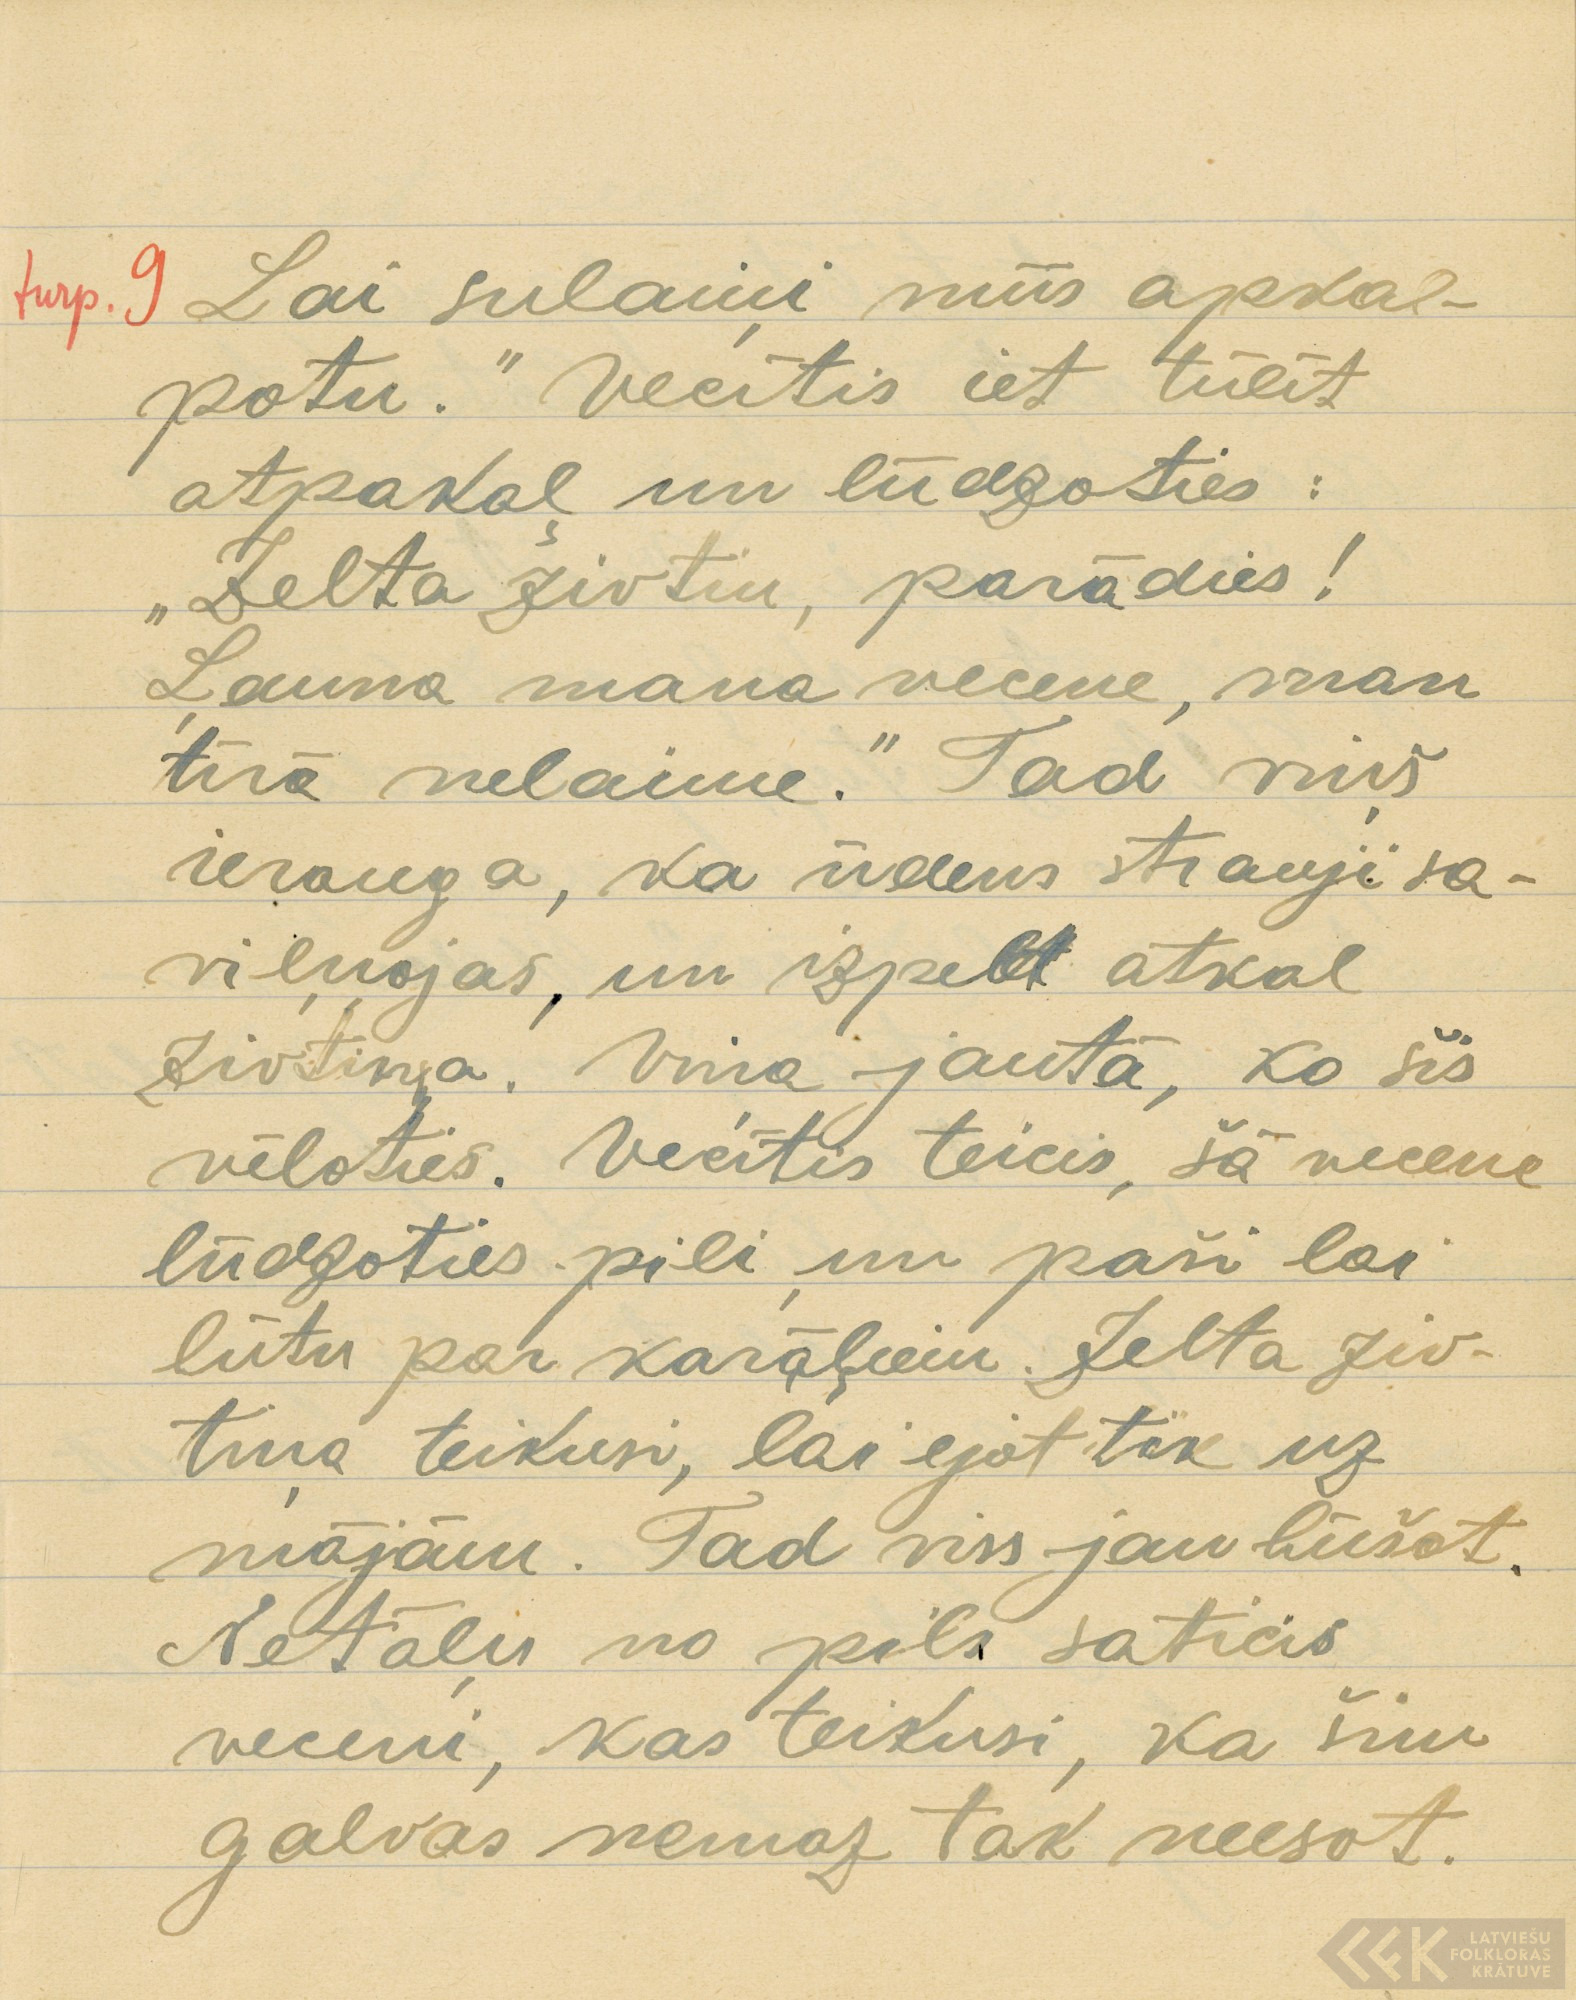 turp. 9 Lai sulaiņi mūs apkal-
potu." Vecītis iet tūlīt
atpakaļ un lūdzoties:
„Zelta zivtiņ, parādies!
Ļauna mana vecene, man
tīrā nelaime." Tad viņš
ierauga, ka ūdens strauji sa-
viļņojas, un izpeld atkal
zivtiņa. Viņa jautā, ko šis
vēloties. Vecītis teicis, šā vecene
lūdzoties pili, un paši lai
kļūtu par karaļiem. Zelta ziv-
tiņa teikusi, lai ejot tik uz
mājām. Tad viss jau būšot.
Netāļu no pils saticis
veceni, kas teikusi, ka šim
galvas nemaz tak neesot.
LATVIEŠU
FOLKLORAS
KRĀTUVE